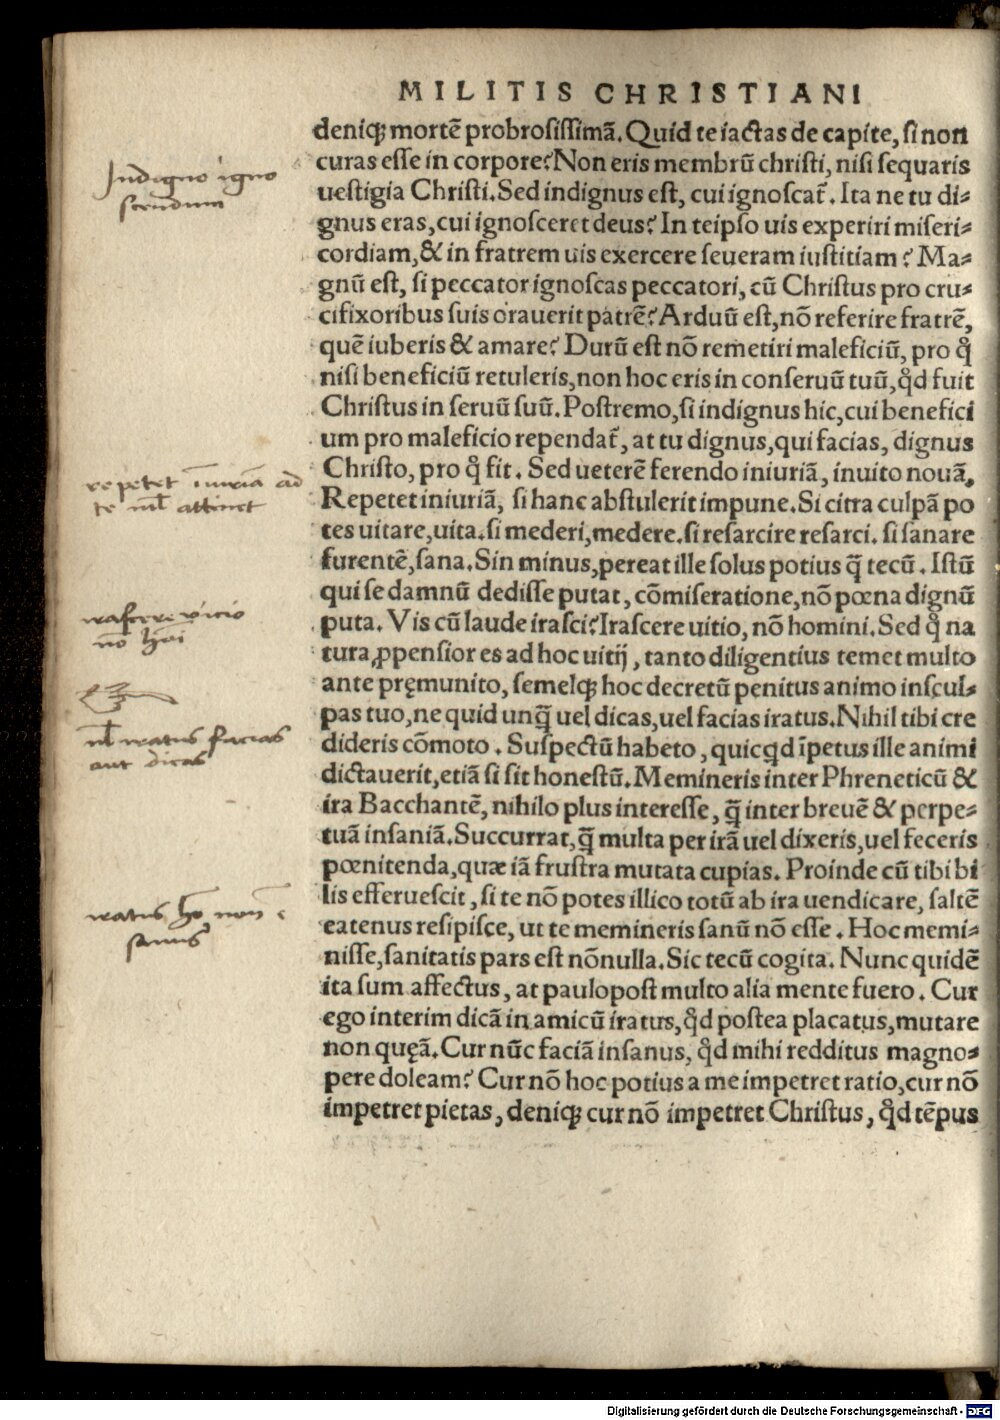 MILITIS CHRISTIANI
deniqꝫ mortē probrosissimā. Quid te iactas de capite, si non
curas esse in corpore? Non eris membrū christi, nisi sequaris
uestigia Christi. Sed indignus est, cui ignoscat̄. Ita ne tu di⸗
gnus eras, cui ignosceret deus? In teipso uis experiri miseri⸗
cordiam, & in fratrem uis exercere seueram iustitiam? Ma⸗
gnū est, si peccator ignoscas peccatori, cū Christus pro cru⸗
cifixoribus suis orauerit patrē? Arduū est, nō referire fratrē,
quē iuberis & amare? Durū est nō remetiri maleficiū, pro qͦ
nisi beneficiū retuleris, non hoc eris in conseruū tuū, qd̛ fuit
Christus in seruū suū. Postremo, si indignus hic, cui benefici
um pro maleficio rependat̄, at tu dignus, qui facias, dignus
Christo, pro qͦ fit. Sed ueterē ferendo iniuriā, inuito nouā.
Repetet iniuriā, si hanc abstulerit impune. Si citra culpā po
tes uitare, uita. si mederi, medere. si resarcire resarci. si sanare
furentē, sana. Sin minus, pereat ille solus potius q̄ tecū. Istū
qui se damnū dedisse putat, cōmiseratione, nō pœna dignū
puta. Vis cū laude irasci? Irascere uitio, nō homini. Sed qͦ na
tura ꝓpensior es ad hoc uitij, tanto diligentius temet multo
ante pręmunito, semelqꝫ hoc decretū penitus animo inscul⸗
pas tuo, ne quid unq̄ uel dicas, uel facias iratus. Nihil tibi cre
dideris cōmoto. Suspectū habeto, quicqd īpetus ille animi
dictauerit, etiā si sit honestū. Memineris inter Phreneticū &
ira Bacchantē, nihilo plus interesse, q̄ inter breuē & perpe⸗
tuā insaniā. Succurrat, q̄ multa per irā uel dixeris, uel feceris
pœnitenda, quæ iā frustra mutata cupias. Proinde cū tibi bi
lis efferuescit, si te nō potes illico totū ab ira uendicare, saltē
eatenus resipisce, ut te memineris sanū nō esse. Hoc memi⸗
nisse, sanitatis pars est nōnulla. Sic tecū cogita. Nunc quidē
ita sum affectus, at paulopost multo alia mente fuero. Cur
ego interim dicā in amicū iratus, qd̛ postea placatus, mutare
non queā. Cur nūc faciā insanus, qd̛ mihi redditus magno⸗
pere doleam? Cur nō hoc potius a me impetret ratio, cur nō
impetret pietas, deniqꝫ cur nō impetret Christus, qd̛ tēpus
Indigno igno
scendum
repetet īniuriā ad
te nil attinet
irascere vicio
nō hōi
nil iratus facias
aut dicas
iratus hō non ē
sanus
Digitalisierung gefördert durch die Deutsche Forschungsgemeinschaft - DFG